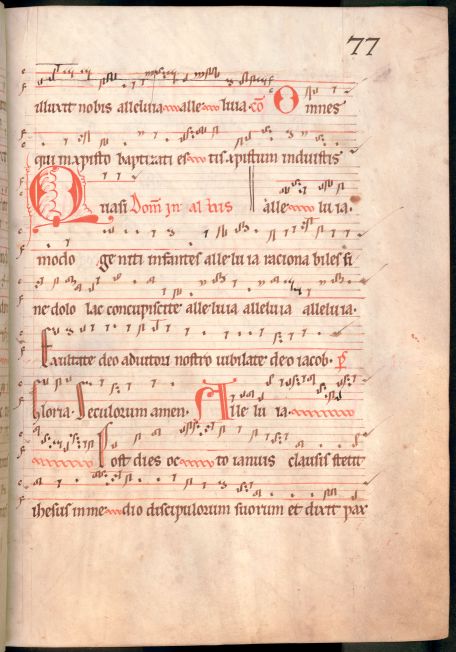 77
illuxit nobis alleluia alle luia. cō Omnes
qui in xpisto baptizati es tis xpistum induistis
Quasi Dom in albis alle lu ia.
modo ge niti infantes alle lu ia raciona biles si
ne dolo lac concupiscite alle lu ia alleluia alleluia.
Exultate deo adiutori nostro iubilate deo iacob. p
Gloria. Seculorum amen. Alle lu ia.
Post dies oc to ianuis clausis stetit
ihesus in me dio discipulorum suorum et dixit pax